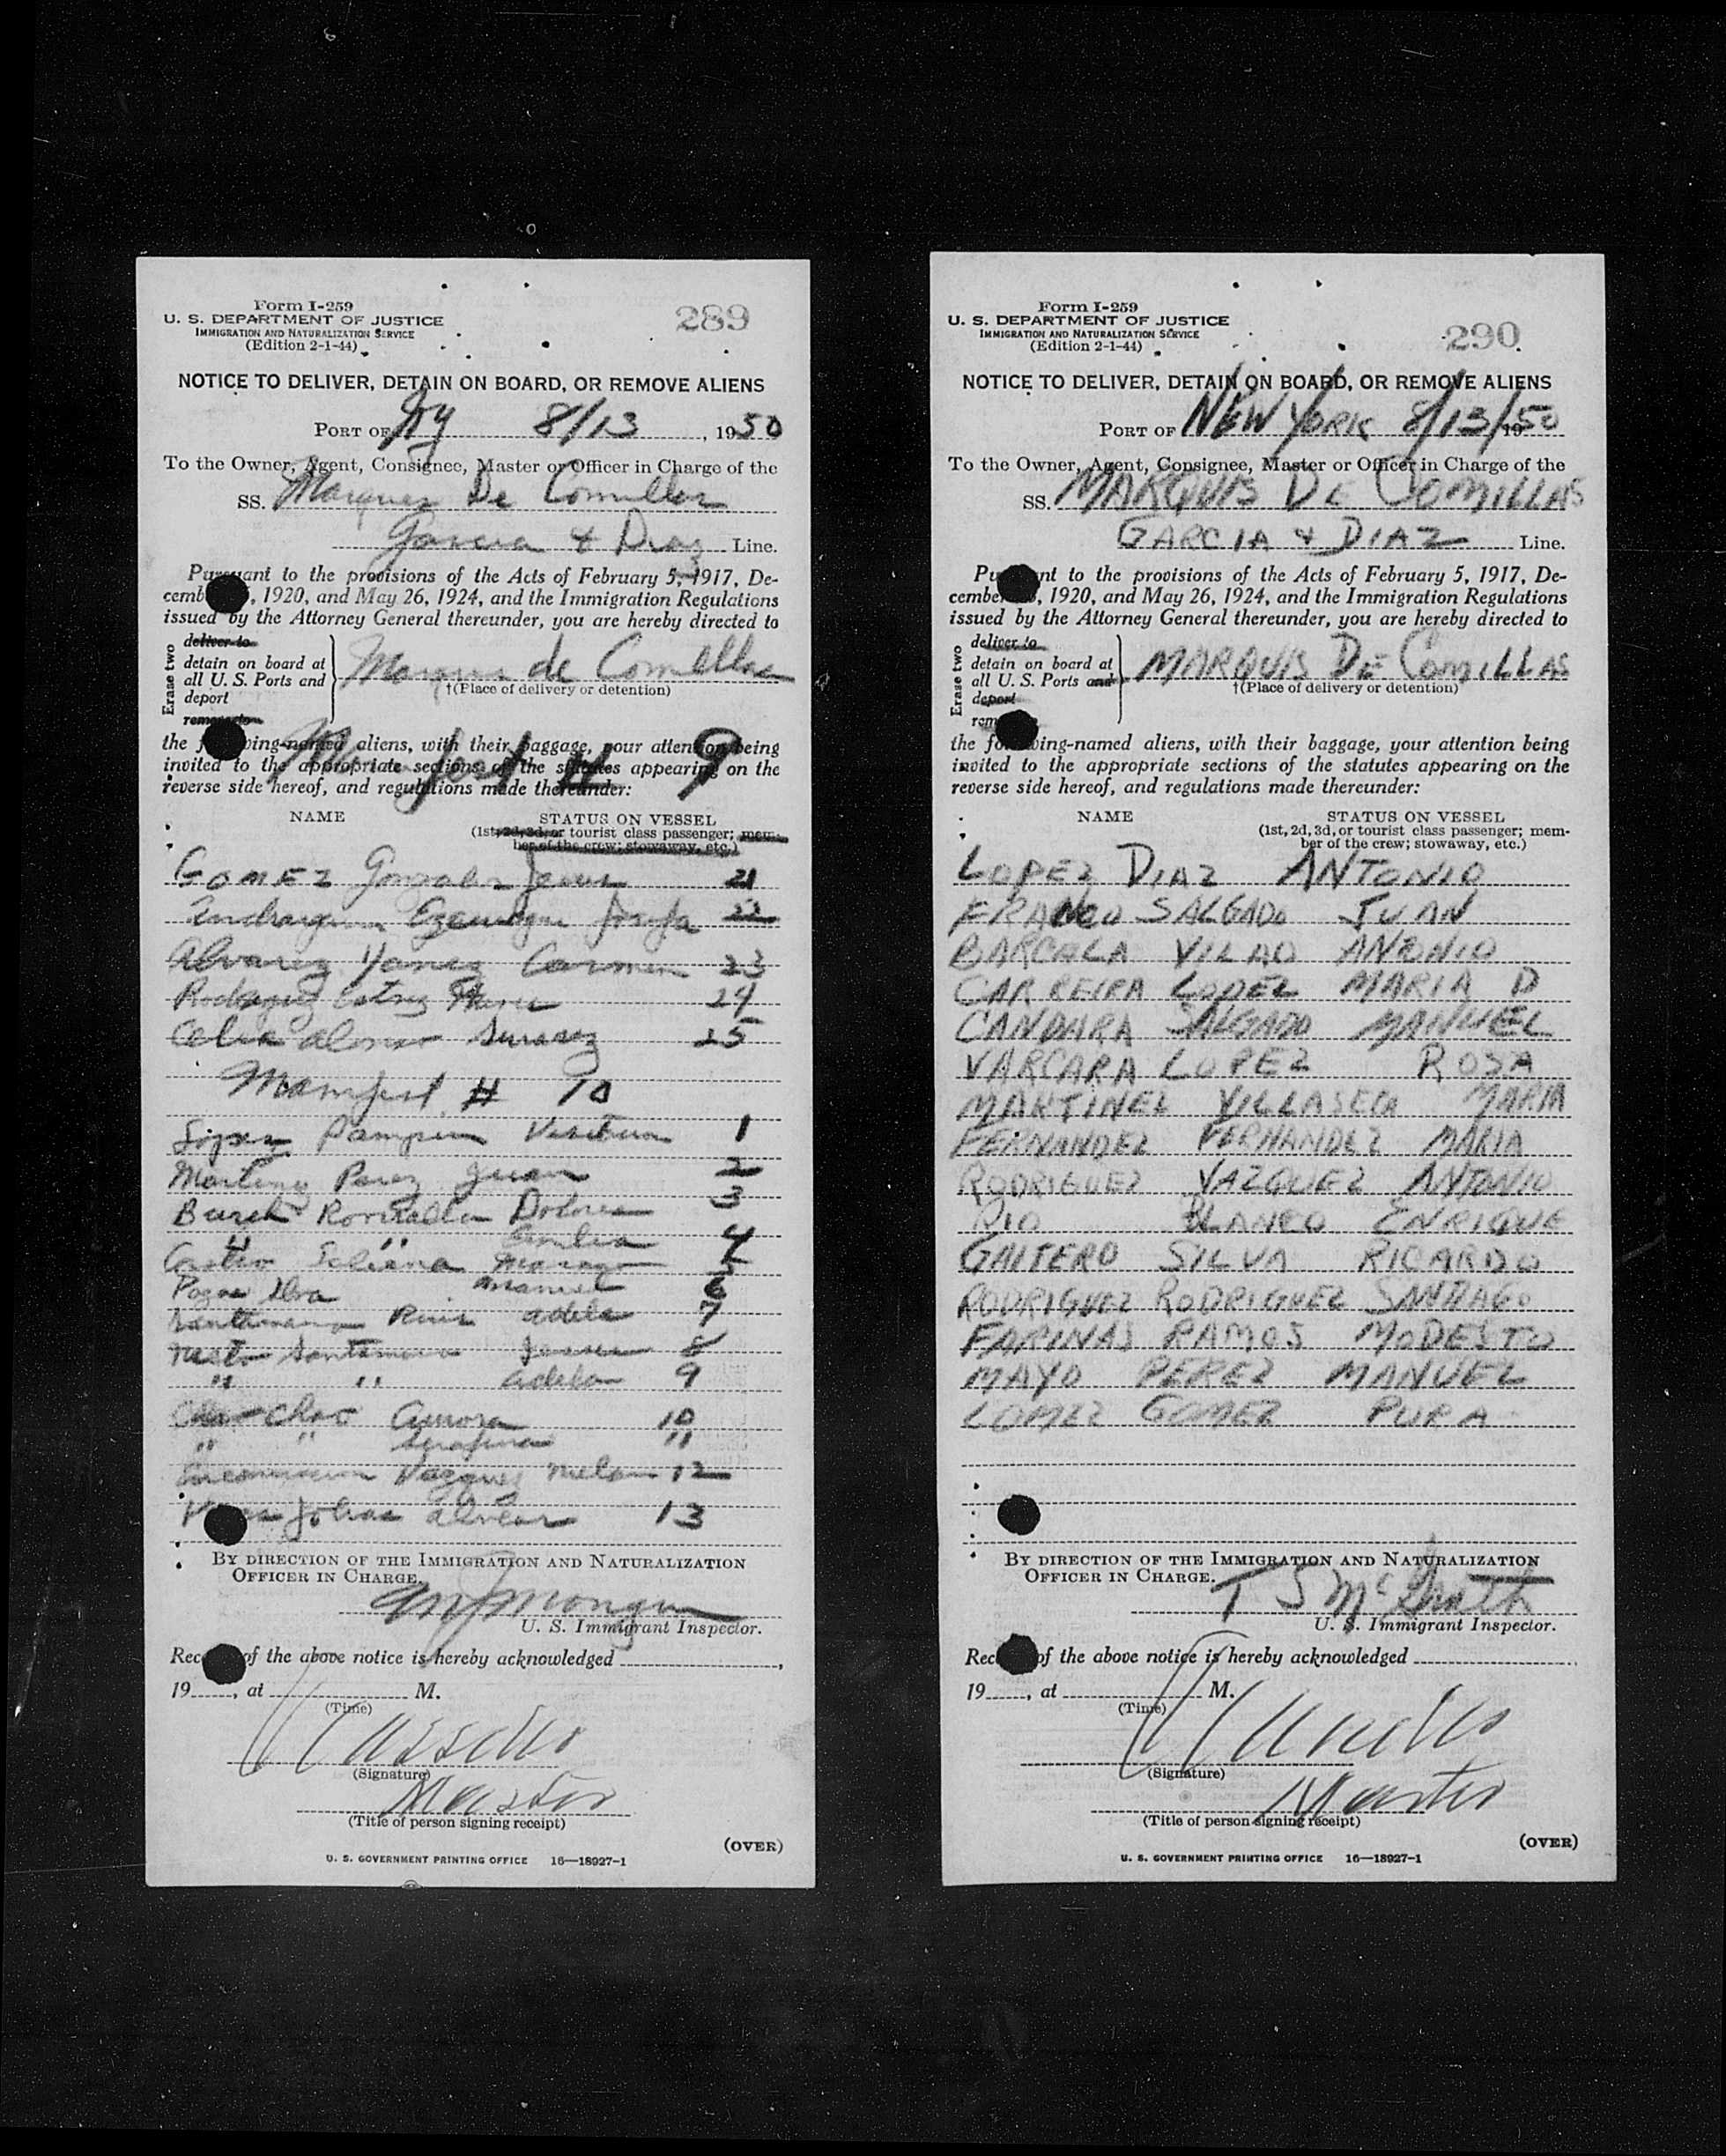 Form I-259
U. S. DEPARTMENT OF JUSTICE
IMMIGRATION AND NATURALIZATION SERVICE
(Edition 2-1-44)
289
NOTICE TO DELIVER, DETAIN ON BOARD, OR REMOVE ALIENS
PORT OF NY 8/13, 1950
To the Owner, Agent, Consignee, Master or Officer in Charge of the
SS. Marques De Comillas
Garcia & Diaz Line.
Pursuant to the provisions of the Acts of February 5, 1917, De-
cemb , 1920, and May 26, 1924, and the Immigration Regulations
issued by the Attorney General thereunder, you are hereby directed to
Erase two
deliver to
detain on board at
all U. S. Ports and
deport
remove to
Marquis de Comillas
†(Place of delivery or detention)
Manifest # 9
the following-named aliens, with their baggage, your attention being
invited to the appropriate sections of the statutes appearing on the
reverse side hereof, and regulations made thereunder:
NAME STATUS ON VESSEL
(1st, 2d, 3d, or tourist class passenger; mem-
ber of the crew; stowaway, etc.)
GOMEZ Gonzalez Jesus 21
Josefa 22
Alvarez Yanez Carmen 23
Rodriguez 24
Celia Alonso Suarez 25
Manifest # 10
Lopez Pampin 1
Martinez Perez Juan 2
Dolores 3
" " Emilia 4
Castro 5
Manuel 6
Adela 7
Santamaria Jesus 8
" " Adela 9
Chao Chao Aurora 10
" " Serafina 11
Vazquez 12
13
BY DIRECTION OF THE IMMIGRATION AND NATURALIZATION
OFFICER IN CHARGE.
U. S. Immigrant Inspector.
Rec of the above notice is hereby acknowledged
19 , at M.
(Time)
(Signature)
Master
(Title of person signing receipt)
(OVER)
U. S. GOVERNMENT PRINTING OFFICE 16—18927-1
Form I-259
U. S. DEPARTMENT OF JUSTICE
IMMIGRATION AND NATURALIZATION SERVICE
(Edition 2-1-44)
290
NOTICE TO DELIVER, DETAIN ON BOARD, OR REMOVE ALIENS
PORT OF NEW YORK 8/13/1950
To the Owner, Agent, Consignee, Master or Officer in Charge of the
SS. MARQUIS DE COMILLAS
GARCIA & DIAZ Line.
Pu nt to the provisions of the Acts of February 5, 1917, De-
cember , 1920, and May 26, 1924, and the Immigration Regulations
issued by the Attorney General thereunder, you are hereby directed to
Erase two
deliver to
detain on board at
all U. S. Ports and
deport
rem
MARQUIS DE COMILLAS
†(Place of delivery or detention)
the following-named aliens, with their baggage, your attention being
invited to the appropriate sections of the statutes appearing on the
reverse side hereof, and regulations made thereunder:
NAME STATUS ON VESSEL
(1st, 2d, 3d, or tourist class passenger; mem-
ber of the crew; stowaway, etc.)
LOPEZ DIAZ ANTONIO
FRANCO SALGADO JUAN
BARCALA VILAO ANTONIO
CARREIRA LOPEZ MARIA D
CANDARA SALGADO MANUEL
VARCARA LOPEZ ROSA
MARTINEZ VILLASECA MARIA
FERNANDEZ FERNANDEZ MARIA
RODRIGUEZ VAZQUEZ ANTONIO
RIO BLANCO ENRIQUE
GAITERO SILVA RICARDO
RODRIGUEZ RODRIGUEZ SANTIAGO
FARINAS RAMOS MODESTO
MAYO PEREZ MANUEL
GOMEZ PURA
BY DIRECTION OF THE IMMIGRATION AND NATURALIZATION
OFFICER IN CHARGE.
T S McGrath
U. S. Immigrant Inspector.
Rec of the above notice is hereby acknowledged
19 , at M.
(Time)
(Signature)
Master
(Title of person signing receipt)
(OVER)
U. S. GOVERNMENT PRINTING OFFICE 16—18927-1